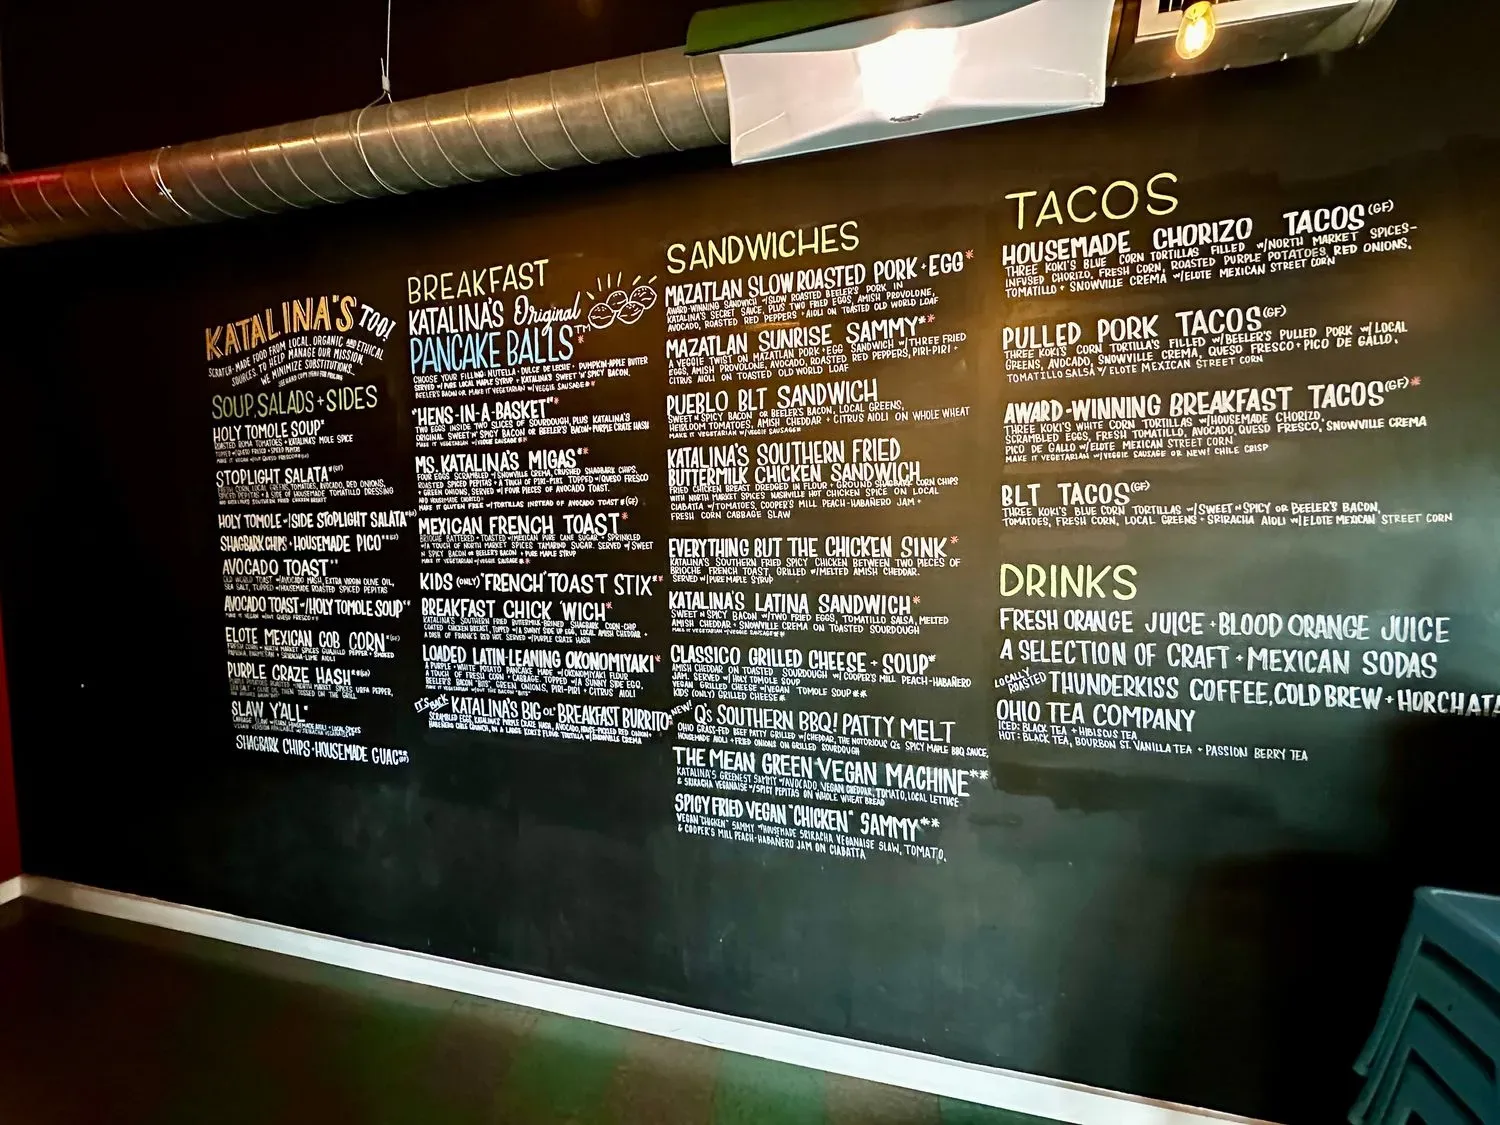 KATALINA'S TOO!
SCRATCH-MADE FOOD FROM LOCAL, ORGANIC AND ETHICAL
SOURCES. TO HELP MANAGE OUR MISSION,
WE MINIMIZE SUBSTITUTIONS.
SOUP, SALADS + SIDES
HOLY TOMOLE SOUP*
ROASTED ROMA TOMATOES + KATALINA'S MOLE SPICE
TOPPED W/QUESO FRESCO + SPICED PEPITAS
STOPLIGHT SALATA*(GF)
FRESH CORN, LOCAL GREENS, TOMATOES, AVOCADO, RED ONIONS,
SPICED PEPITAS + A SIDE OF HOUSEMADE TOMATILLO DRESSING
HOLY TOMOLE W/SIDE STOPLIGHT SALATA*(GF)
SHAGBARK CHIPS + HOUSEMADE PICO**(GF)
AVOCADO TOAST**
OLD WORLD TOAST W/AVOCADO MASH, EXTRA VIRGIN OLIVE OIL,
SEA SALT, TOPPED W/HOUSEMADE ROASTED SPICED PEPITAS
AVOCADO TOAST W/HOLY TOMOLE SOUP**
MAKE IT VEGAN W/OUT QUESO FRESCO**
ELOTE MEXICAN COB CORN*(GF)
FRESH CORN + NORTH MARKET SPICES GUAJILLO PEPPER + SMOKED
PAPRIKA, PARMESAN + SRIRACHA-LIME AIOLI
PURPLE CRAZE HASH**(GF)
PURPLE POTATOES ROASTED W/NORTH MARKET SPICES URFA PEPPER,
SEA SALT + OLIVE OIL THEN TOSSED ON THE GRILL
SLAW Y'ALL*
SHAGBARK CHIPS + HOUSEMADE GUAC**(GF)
BREAKFAST
KATALINA'S Original
PANCAKE BALLS™*
CHOOSE YOUR FILLING: NUTELLA + DULCE DE LECHE + PUMPKIN-APPLE BUTTER
SERVED W/ PURE LOCAL MAPLE SYRUP + KATALINA'S SWEET 'N' SPICY BACON,
BEELER'S BACON OR MAKE IT VEGETARIAN W/VEGGIE SAUSAGE*
"HENS-IN-A-BASKET"*
TWO EGGS INSIDE TWO SLICES OF SOURDOUGH, PLUS KATALINA'S
ORIGINAL SWEET 'N' SPICY BACON OR BEELER'S BACON + PURPLE CRATE HASH
MAKE IT VEGETARIAN W/VEGGIE SAUSAGE*
MS. KATALINA'S MIGAS**
FOUR EGGS SCRAMBLED W/SNOWVILLE CREMA, CRUSHED SHAGBARK CHIPS,
ROASTED SPICED PEPITAS + A TOUCH OF PIRI-PIRI TOPPED W/QUESO FRESCO
+ GREEN ONIONS, SERVED W/ FOUR PIECES OF AVOCADO TOAST.
ADD HOUSEMADE CHORIZO
MAKE IT GLUTEN FREE W/TORTILLAS INSTEAD OF AVOCADO TOAST*(GF)
MEXICAN FRENCH TOAST*
BRIOCHE BATTERED + TOASTED W/MEXICAN PURE CANE SUGAR + SPRINKLED
W/A TOUCH OF NORTH MARKET SPICES TAMARIND SUGAR. SERVED W/ SWEET
N SPICY BACON OR BEELER'S BACON + PURE MAPLE SYRUP
MAKE IT VEGETARIAN W/VEGGIE SAUSAGE*
KIDS (ONLY) "FRENCH" TOAST STIX**
BREAKFAST CHICK 'WICH*
KATALINA'S SOUTHERN FRIED BUTTERMILK-BRINED SHAGBARK CORN-CHIP
COATED CHICKEN BREAST, TOPPED W/A SUNNY SIDE UP EGG, LOCAL AMISH CHEDDAR +
A DASH OF FRANK'S RED HOT. SERVED W/PURPLE CRATE HASH
LOADED LATIN-LEANING OKONOMIYAKI*
A PURPLE + WHITE POTATO PANCAKE MADE W/OKONOMIYAKI FLOUR,
A TOUCH OF FRESH CORN + CABBAGE, TOPPED W/A SUNNY SIDE EGG,
BEELER'S BACON "BITS" GREEN ONIONS, PIRI-PIRI + CITRUS AIOLI
MAKE IT VEGETARIAN W/OUT THE BACON*
IT'S BACK KATALINA'S BIG OL' BREAKFAST BURRITO*
SCRAMBLED EGGS, KATALINA'S PURPLE CRATE HASH, AVOCADO, HOUSE-PICKLED RED ONION,
HABENERO CHILE CRUNCH, IN A LARGE KOKI'S FLOUR TORTILLA W/SNOWVILLE CREMA
SANDWICHES
MAZATLAN SLOW ROASTED PORK + EGG*
AWARD-WINNING SANDWICH W/SLOW ROASTED BEELER'S PORK IN
KATALINA'S SECRET SAUCE, PLUS TWO FRIED EGGS, AMISH PROVOLONE,
AVOCADO, ROASTED RED PEPPERS + AIOLI ON TOASTED OLD WORLD LOAF
MAZATLAN SUNRISE SAMMY**
A VEGGIE TWIST ON MAZATLAN PORK + EGG SANDWICH W/THREE FRIED
EGGS, AMISH PROVOLONE, AVOCADO, ROASTED RED PEPPERS, PIRI-PIRI +
CITRUS AIOLI ON TOASTED OLD WORLD LOAF
PUEBLO BLT SANDWICH
SWEET N SPICY BACON OR BEELER'S BACON, LOCAL GREENS,
HEIRLOOM TOMATOES, AMISH CHEDDAR + CITRUS AIOLI ON WHOLE WHEAT
MAKE IT VEGETARIAN W/VEGGIE SAUSAGE*
KATALINA'S SOUTHERN FRIED
BUTTERMILK CHICKEN SANDWICH
FRIED CHICKEN BREAST DREDGED IN FLOUR + GROUND SHAGBARK CORN CHIPS
WITH NORTH MARKET SPICES NASHVILLE HOT CHICKEN SPICE ON LOCAL
CIABATTA W/TOMATOES, COOPER'S MILL PEACH-HABAÑERO JAM +
FRESH CORN CABBAGE SLAW
EVERYTHING BUT THE CHICKEN SINK*
KATALINA'S SOUTHERN FRIED SPICY CHICKEN BETWEEN TWO PIECES OF
BRIOCHE FRENCH TOAST, GRILLED W/MELTED AMISH CHEDDAR.
SERVED W/PURE MAPLE SYRUP
KATALINA'S LATINA SANDWICH*
SWEET N SPICY BACON W/TWO FRIED EGGS, TOMATILLO SALSA, MELTED
AMISH CHEDDAR + SNOWVILLE CREMA ON TOASTED SOURDOUGH
MAKE IT VEGETARIAN W/VEGGIE SAUSAGE*
CLASSICO GRILLED CHEESE + SOUP*
AMISH CHEDDAR ON TOASTED SOURDOUGH W/COOPER'S MILL PEACH-HABAÑERO
JAM. SERVED W/HOLY TOMOLE SOUP
VEGAN GRILLED CHEESE W/VEGAN TOMOLE SOUP**
KIDS (ONLY) GRILLED CHEESE*
NEW! Q'S SOUTHERN BBQ! PATTY MELT
OHIO GRASS-FED BEEF PATTY GRILLED W/CHEDDAR, THE NOTORIOUS Q'S SPICY MAPLE BBQ SAUCE,
HOUSEMADE AIOLI + FRIED ONIONS ON GRILLED SOURDOUGH
THE MEAN GREEN VEGAN MACHINE**
KATALINA'S GREENEST SAMMY W/AVOCADO, VEGAN CHEDDAR, TOMATO, LOCAL LETTUCE
& SRIRACHA VEGANAISE W/SPICY PEPITAS ON WHOLE WHEAT BREAD
SPICY FRIED VEGAN "CHICKEN" SAMMY**
VEGAN "CHICKEN" SAMMY W/HOUSEMADE SRIRACHA VEGANAISE SLAW, TOMATO,
& COOPER'S MILL PEACH-HABAÑERO JAM ON CIABATTA
TACOS
HOUSEMADE CHORIZO TACOS(GF)
THREE KOKI'S BLUE CORN TORTILLAS FILLED W/NORTH MARKET SPICES-
INFUSED CHORIZO, FRESH CORN, ROASTED PURPLE POTATOES, RED ONIONS,
TOMATILLO + SNOWVILLE CREMA W/ELOTE MEXICAN STREET CORN
PULLED PORK TACOS(GF)
THREE KOKI'S CORN TORTILLA'S FILLED W/BEELER'S PULLED PORK W/LOCAL
GREENS, AVOCADO, SNOWVILLE CREMA, QUESO FRESCO + PICO DE GALLO,
TOMATILLO SALSA W/ELOTE MEXICAN STREET CORN
AWARD-WINNING BREAKFAST TACOS(GF)*
THREE KOKI'S WHITE CORN TORTILLAS W/HOUSEMADE CHORIZO,
SCRAMBLED EGGS, FRESH TOMATILLO, AVOCADO QUESO FRESCO, SNOWVILLE CREMA
PICO DE GALLO W/ELOTE MEXICAN STREET CORN.
MAKE IT VEGETARIAN W/VEGGIE SAUSAGE OR NEW! CHILE CRISP
BLT TACOS(GF)
THREE KOKI'S BLUE CORN TORTILLAS W/SWEET N SPICY OR BEELER'S BACON,
TOMATOES, FRESH CORN, LOCAL GREENS + SRIRACHA AIOLI W/ELOTE MEXICAN STREET CORN
DRINKS
FRESH ORANGE JUICE + BLOOD ORANGE JUICE
A SELECTION OF CRAFT + MEXICAN SODAS
LOCALLY ROASTED THUNDERKISS COFFEE, COLD BREW + HORCHATA
OHIO TEA COMPANY
ICED: BLACK TEA + HIBISCUS TEA
HOT: BLACK TEA, BOURBON ST. VANILLA TEA + PASSION BERRY TEA